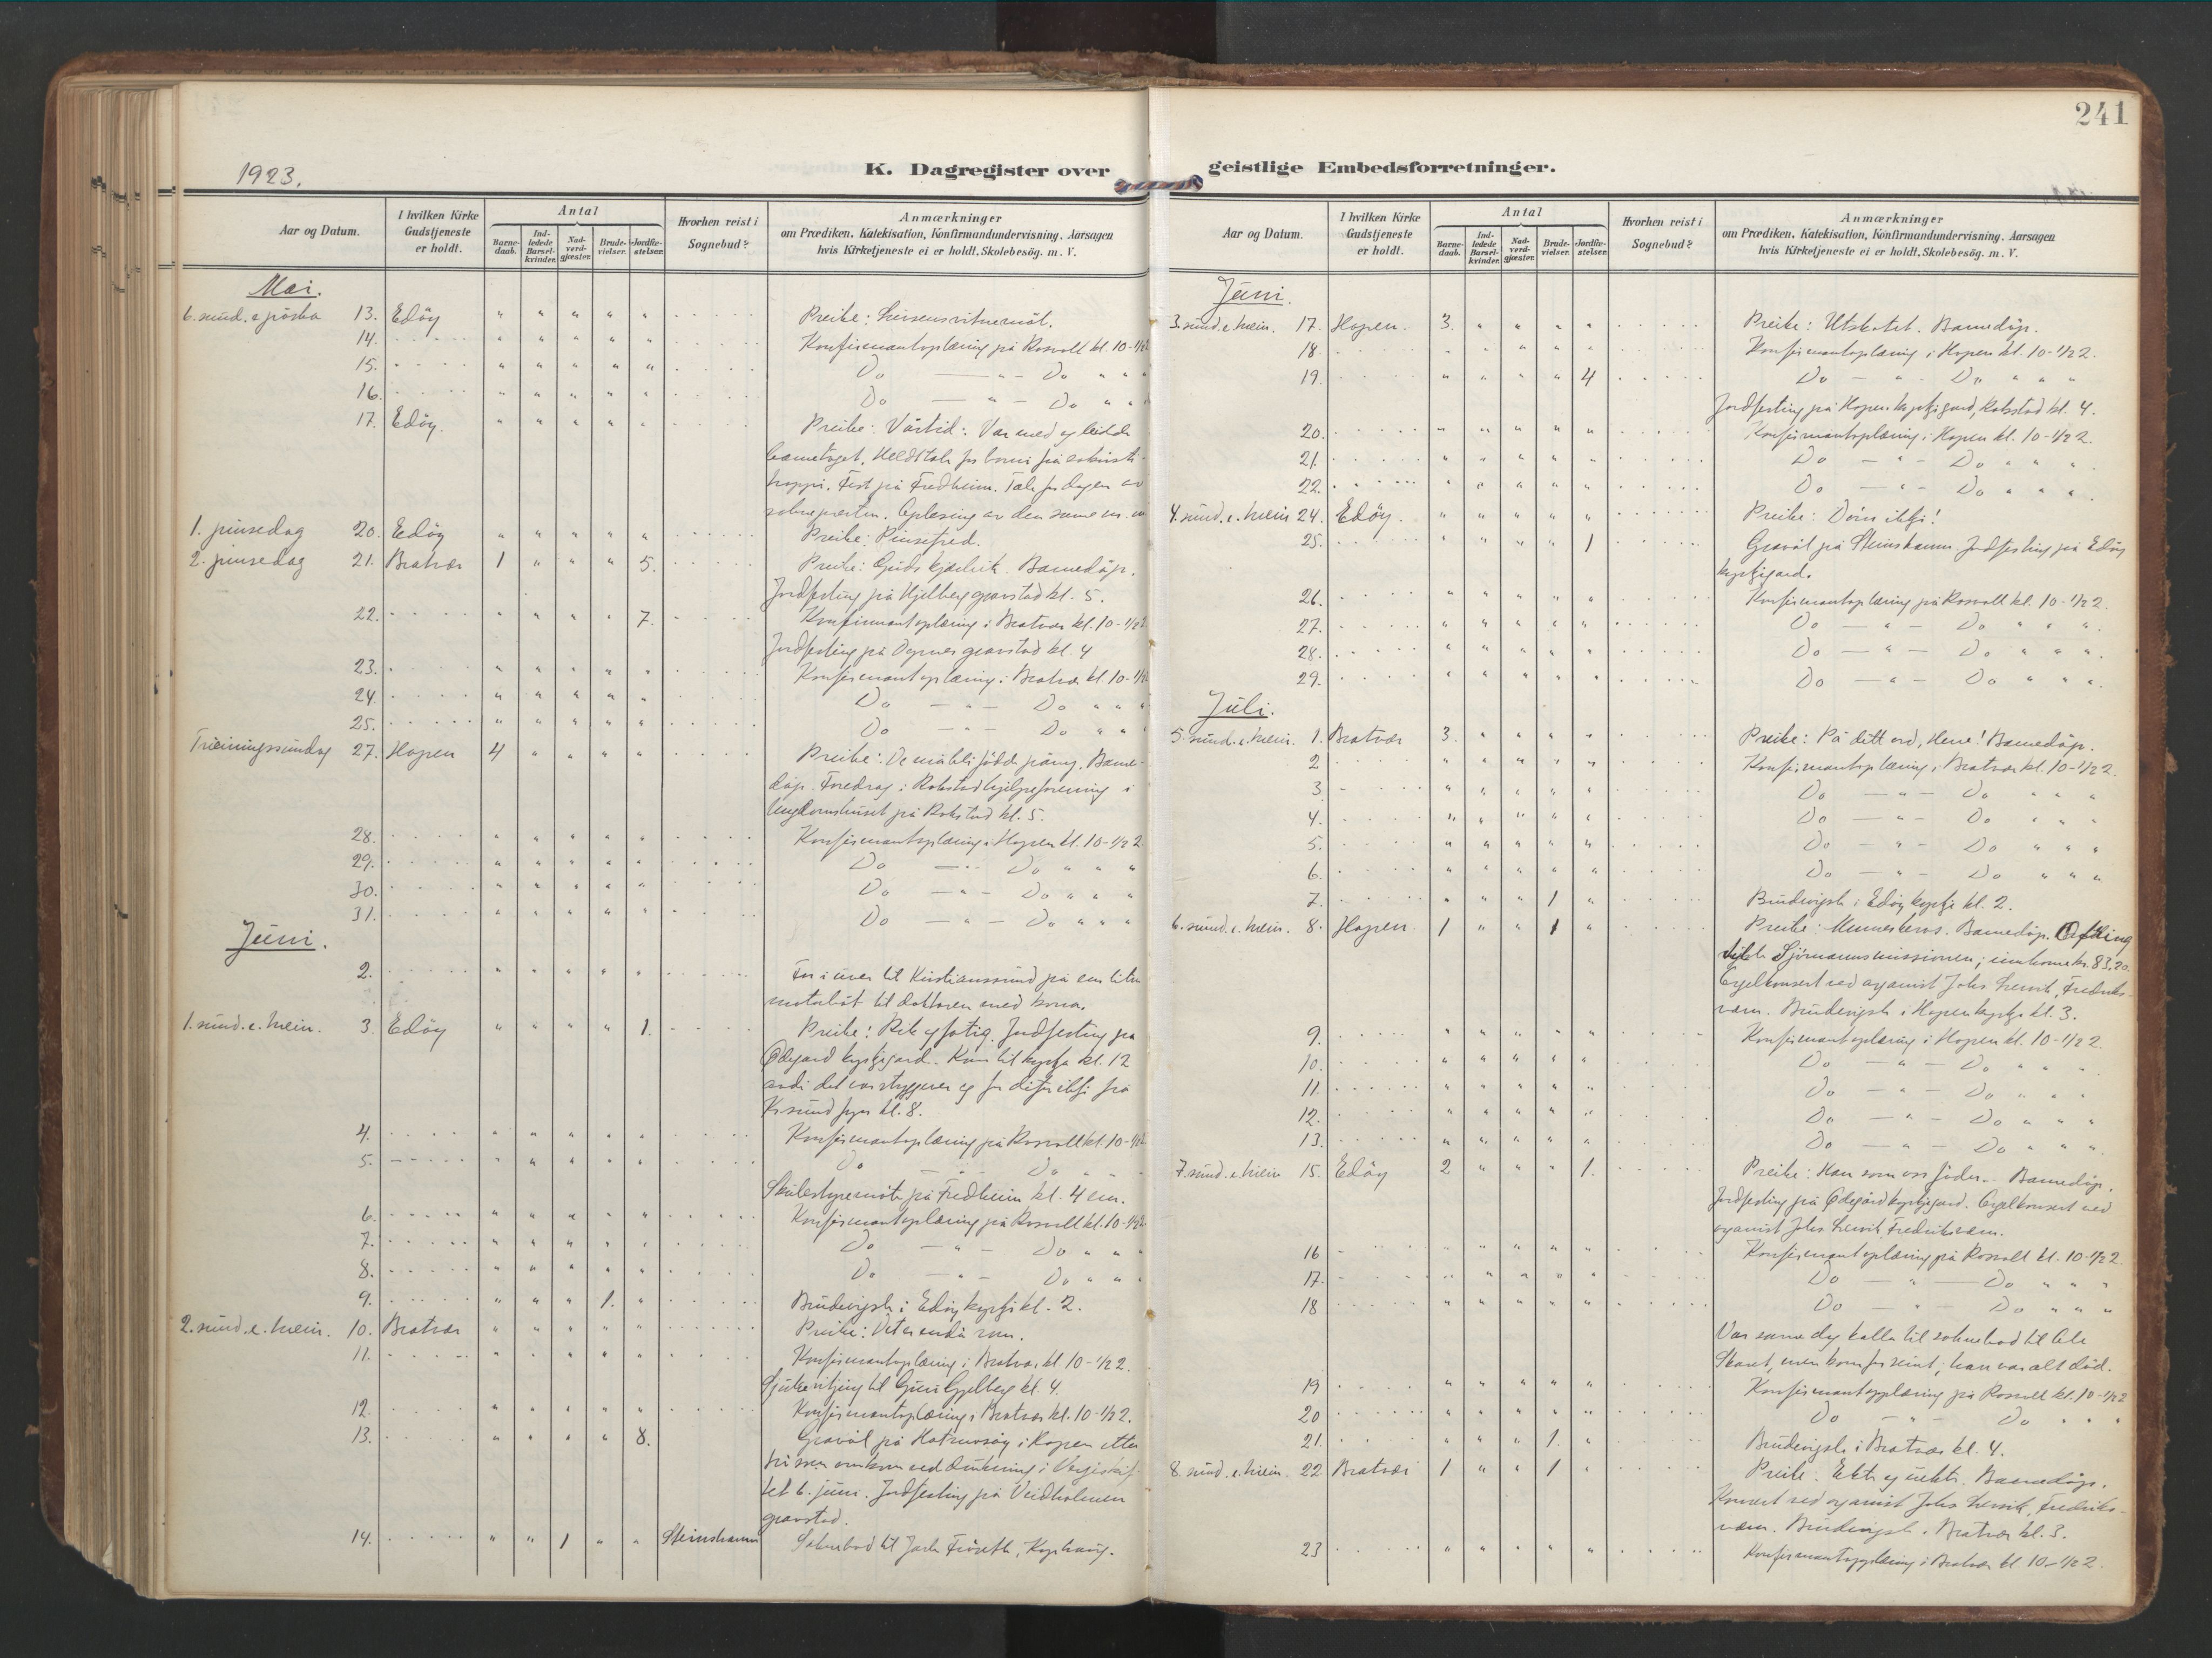 241
1923.
K. Dagregister over
Aar og Datum.
I hvilken Kirke Gudstjeneste er holdt.
Antal
Barnedaab.
Indledede Barselkvinder.
Nadverdgjæster.
Brudevielser.
Jordfæstelser.
Hvorhen reist i Sognebud?
Anmærkninger
om Prædiken, Katekisation, Konfirmandundervisning, Aarsagen
hvis Kirketjeneste ei er holdt, Skolebesög. m. V.
Mai.
6. sund. e påska 13. Edöy " " " " " Preike:
14. " " " " " Konfirmantoplæring på Rosvoll kl. 10-1/2 2
15. " " " " " Do — " — Do " " "
16. " " " " " Do — " — Do " " "
17. Edöy. " " " " " Preike: Vårtid: Var med og leidde
barnetoget. for borni på
Fest på Fredheim. Tale for dagen av
soknepresten. Oplesing av den same
1. pinsedag 20. Edöy " " " " " Preike: Pinsefred.
2. pinsedag 21. Bratvær 1 " " " 5. Preike: Guds kjærleik. Barnedåp.
Jordfesting på Hjelberg gravstad kl. 5.
22. " " " " 7. Konfirmantoplæring i Bratvær kl. 10-1/2 2
Jordfesting på gravstad kl. 4
23. " " " " " Konfirmantoplæring i Bratvær kl. 10-1/2
24. " " " " " Do — " — Do " " "
25. " " " " " Do — " — Do " " "
Treiningssundag 27. Hopen 4 " " " " Preike: De må bli födde påny. Barne-
dåp. Foredrag i Rokstad hjelpeforening i
Ungdomshuset på Rokstad kl. 5.
28. " " " " " Konfirmantoplæring i Hopen kl. 10-1/2 2
29. " " " " " Do — " — Do " " "
30. " " " " " Do — " — Do " " "
31. " " " " " Do — " — Do " " "
Juni.
2. " " " " " For i til Kristiansund på ein liten
motorbåt til doktoren med kona.
1. sund. e. trein. 3. Edöy " " " " 1. Preike: Rik og fatig. Jordfesting på
Ödegard kyrkjegard. Kom til kyrkja kl. 12
avdi det var og for difor ikkje frå
Kr.sund fyrr kl. 8.
4. " " " " " Konfirmantoplæring på Rosvoll kl. 10-1/2 2
5. " " " " " Do — " — Do " " "
Skulestyremöte på Fredheim kl. 4 em.
6. " " " " " Konfirmantoplæring på Rosvoll kl. 10-1/2 2
7. " " " " " Do — " — Do " " "
8. " " " " " Do — " — Do " " "
9. " " " 1. " Brudevigsle i Edöy kyrkje kl. 2.
2. sund. e. trein. 10. Bratvær " " " " " Preike: Det er endå rom.
11. Konfirmantoplæring i Bratvær kl 10-1/2 2.
Sjukevitjing til Guri Gjelberg kl. 4.
12. " " " " " Konfirmantoplæring i Bratvær kl. 10-1/2 2.
13. " " " " 8. Gravöl på i Hopen etter
tri som omkom ved drukning i
tet 6. juni. Jordfesting på Veidholmen
gravstad.
14. " " 1 " " Steinshamn Soknebod til
geistlige Embedsforretninger.
Aar og Datum.
I hvilken Kirke Gudstjeneste er holdt.
Antal
Barnedaab.
Indledede Barselkvinder.
Nadverdgjæster.
Brudevielser.
Jordfæstelser.
Hvorhen reist i Sognebud?
Anmærkninger
om Prædiken, Katekisation, Konfirmandundervisning, Aarsagen
hvis Kirketjeneste ei er holdt, Skolebesög. m. V.
Juni.
3. sund. e. trein. 17. Hopen. 3. " " " " Preike: Utskotet. Barnedåp.
18. " " " " " Konfirmantoplæring i Hopen kl. 10-1/2 2.
19. " " " " 4 Do — " — Do " " "
Jordfesting på Hopen kyrkjegard, Rokstad kl. 4.
20. " " " " " Konfirmantoplæring i Hopen kl. 10-1/2 2.
21. " " " " " Do — " — Do " " "
22. " " " " " Do — " — Do " " "
4. sund. e. trein 24. Edöy. " " " " " Preike: Döm ikkje!
25. " " " " 1 Gravöl på Steinshamn. Jordfesting på Edöy
kyrkjegard.
26. " " " " " Konfirmantoplæring på Rosvoll kl. 10-1/2 2.
27. " " " " " Do — " — Do " " "
28. " " " " " Do — " — Do " " "
29. " " " " " Do — " — Do " " "
Juli.
5. sund. e. trein. 1. Bratvær 3. " " " " Preike: På ditt ord, Herre! Barnedåp.
2 " " " " " Konfirmantoplæring i Bratvær kl. 10-1/2 2.
3. " " " " " Do — " — Do " " "
4. " " " " " Do — " — Do " " "
5. " " " " " Do — " — Do " " "
6. " " " " " Do — " — Do " " "
7. " " " 1 " Brudevigsle i Edöy kyrkje kl. 2.
6. sund. e. trein. 8. Hopen. 1 " " 1 " Preike: Barnedåp. Ofring
Sjömannsmissionen; innkome kr. 83,20.
Orgelkonsert ved organist Johs Fredriks-
værn. Brudevigsle i Hopen kyrkje kl. 3.
9. " " " " " Konfirmantoplæring i Hopen kl. 10-1/2 2.
10. " " " " " Do — " — Do " " "
11. " " " " " Do — " — Do " " "
12. " " " " " Do — " — Do " " "
13. " " " " " Do — " — Do " " "
7. sund. e. trein 15. Edöy 2 " " " 1. Preike: Han som oss föder. Barnedåp.
Jordfesting på Ödegård kyrkjegard. Orgelkonsert ved
organist Johs Fredriksværn.
16 " " " " " Konfirmantoplæring på Rosvoll kl. 10-1/2 2
17. " " " " " Do — " — Do " " "
18 " " " " " Do — " — Do " " "
Var same dag kalla til soknebod til
Skaret, men kom for seint; han var alt död.
19 " " " " " Konfirmantopplæring på Rosvoll kl. 10-1/2 2
20 " " " " " Do — " — Do " " "
21. " " " 1. " Brudevigsle i Bratvær kl. 4.
8. sund. e. trein. 22 Bratvær 1 " " 1 " Preike: Ekte og uekte. Barnedåp.
Konsert ved organist Johs Fredriks-
værn. Brudevigsle i Bratvær kl. 3.
23 " " " " " Konfirmantopplæring i Bratvær kl 10-1/2 2.